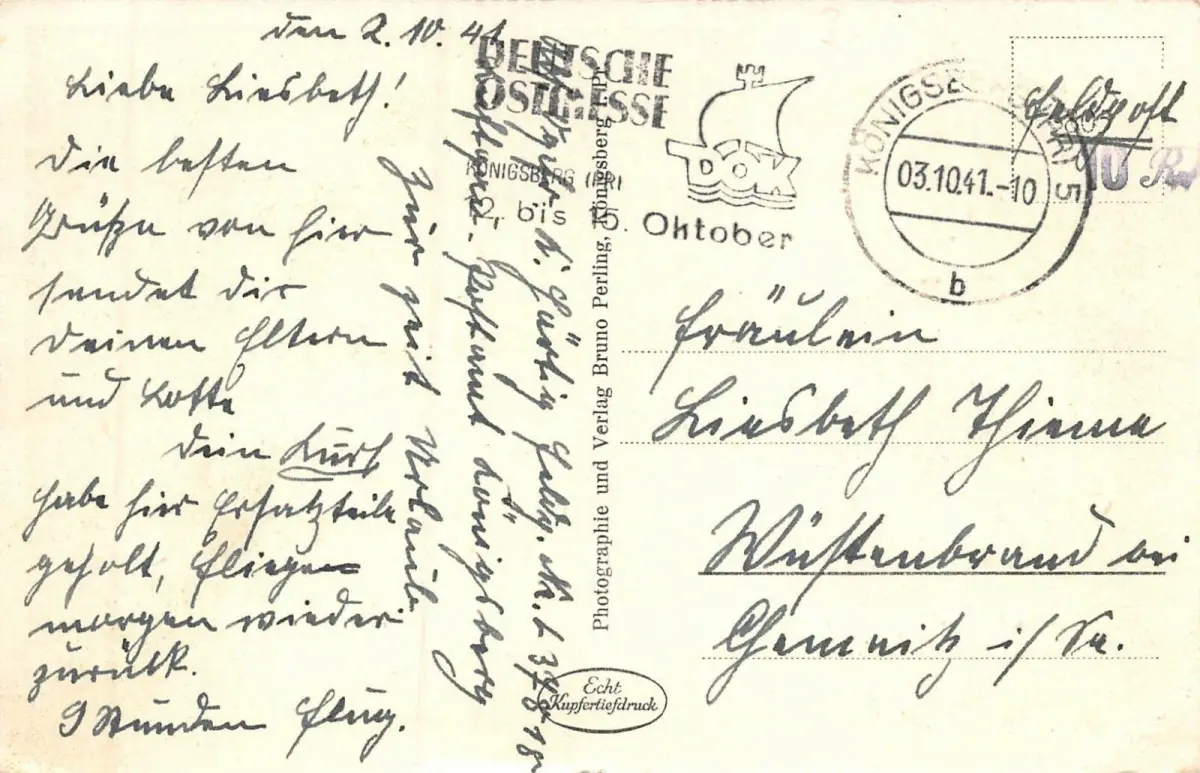 den 2. 10. 41
Liebe Liesbeth!
Die besten
Grüße von hier
sendet dir
deinen Eltern
und Lotte
Dein Kurt
habe hier Ersatzteile
geholt, fliegen
morgen wieder
zurück.
9 Stunden Flug.
Zur zeit Urlaub
Postamt Königsberg
K. Härtig Feldp. Nr. L 37818
DEUTSCHE
OSTMESSE
KÖNIGSBERG (PR)
2. bis 5. Oktober
DOK
Photographie und Verlag Bruno Perling, Königsberg (Pr)
Echt
Kupfertiefdruck
KÖNIGSBERG (PR) 5
03.10.41.-10
b
Feldpost
10
Fräulein
Liesbeth Thieme
Wüstenbrand bei
Chemnitz i/Sa.